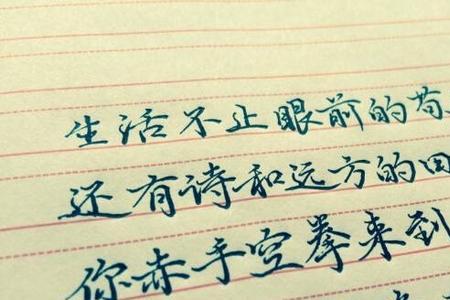 生活不止眼前的苟
还有诗和远方的田
你赤手空拳来到